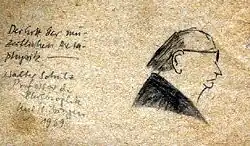 Der Gott der neu-
zeitlichen Meta-
physik
Walter Schulz
Professor der
Philosophie
1969